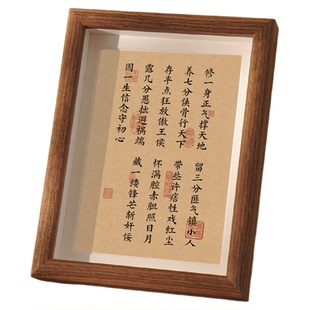 修一身正气撑天地
留三分匪气镇小人
养七分侠骨行天下
带些许痞性戏红尘
存半点狂放傲王侯
怀满腔赤胆照日月
露几分愚拙避祸端
藏一缕锋芒斩奸佞
固一生信念守初心